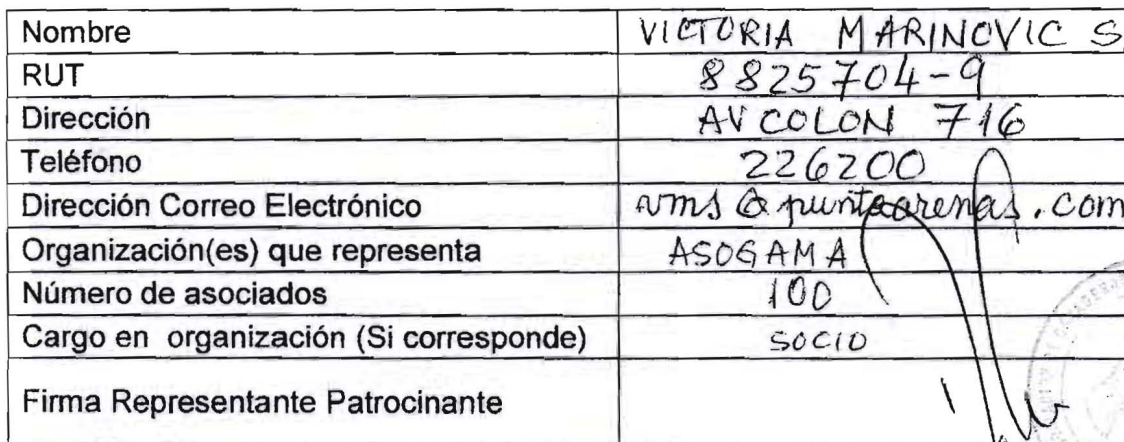 Nombre VICTORIA MARINOVIC S
RUT 8825704-9
Dirección AV COLON 716
Teléfono 226200
Dirección Correo Electrónico vms@puntaarenas.com
Organización(es) que representa ASOGAMA
Número de asociados 100
Cargo en organización (Si corresponde) SOCIO
Firma Representante Patrocinante